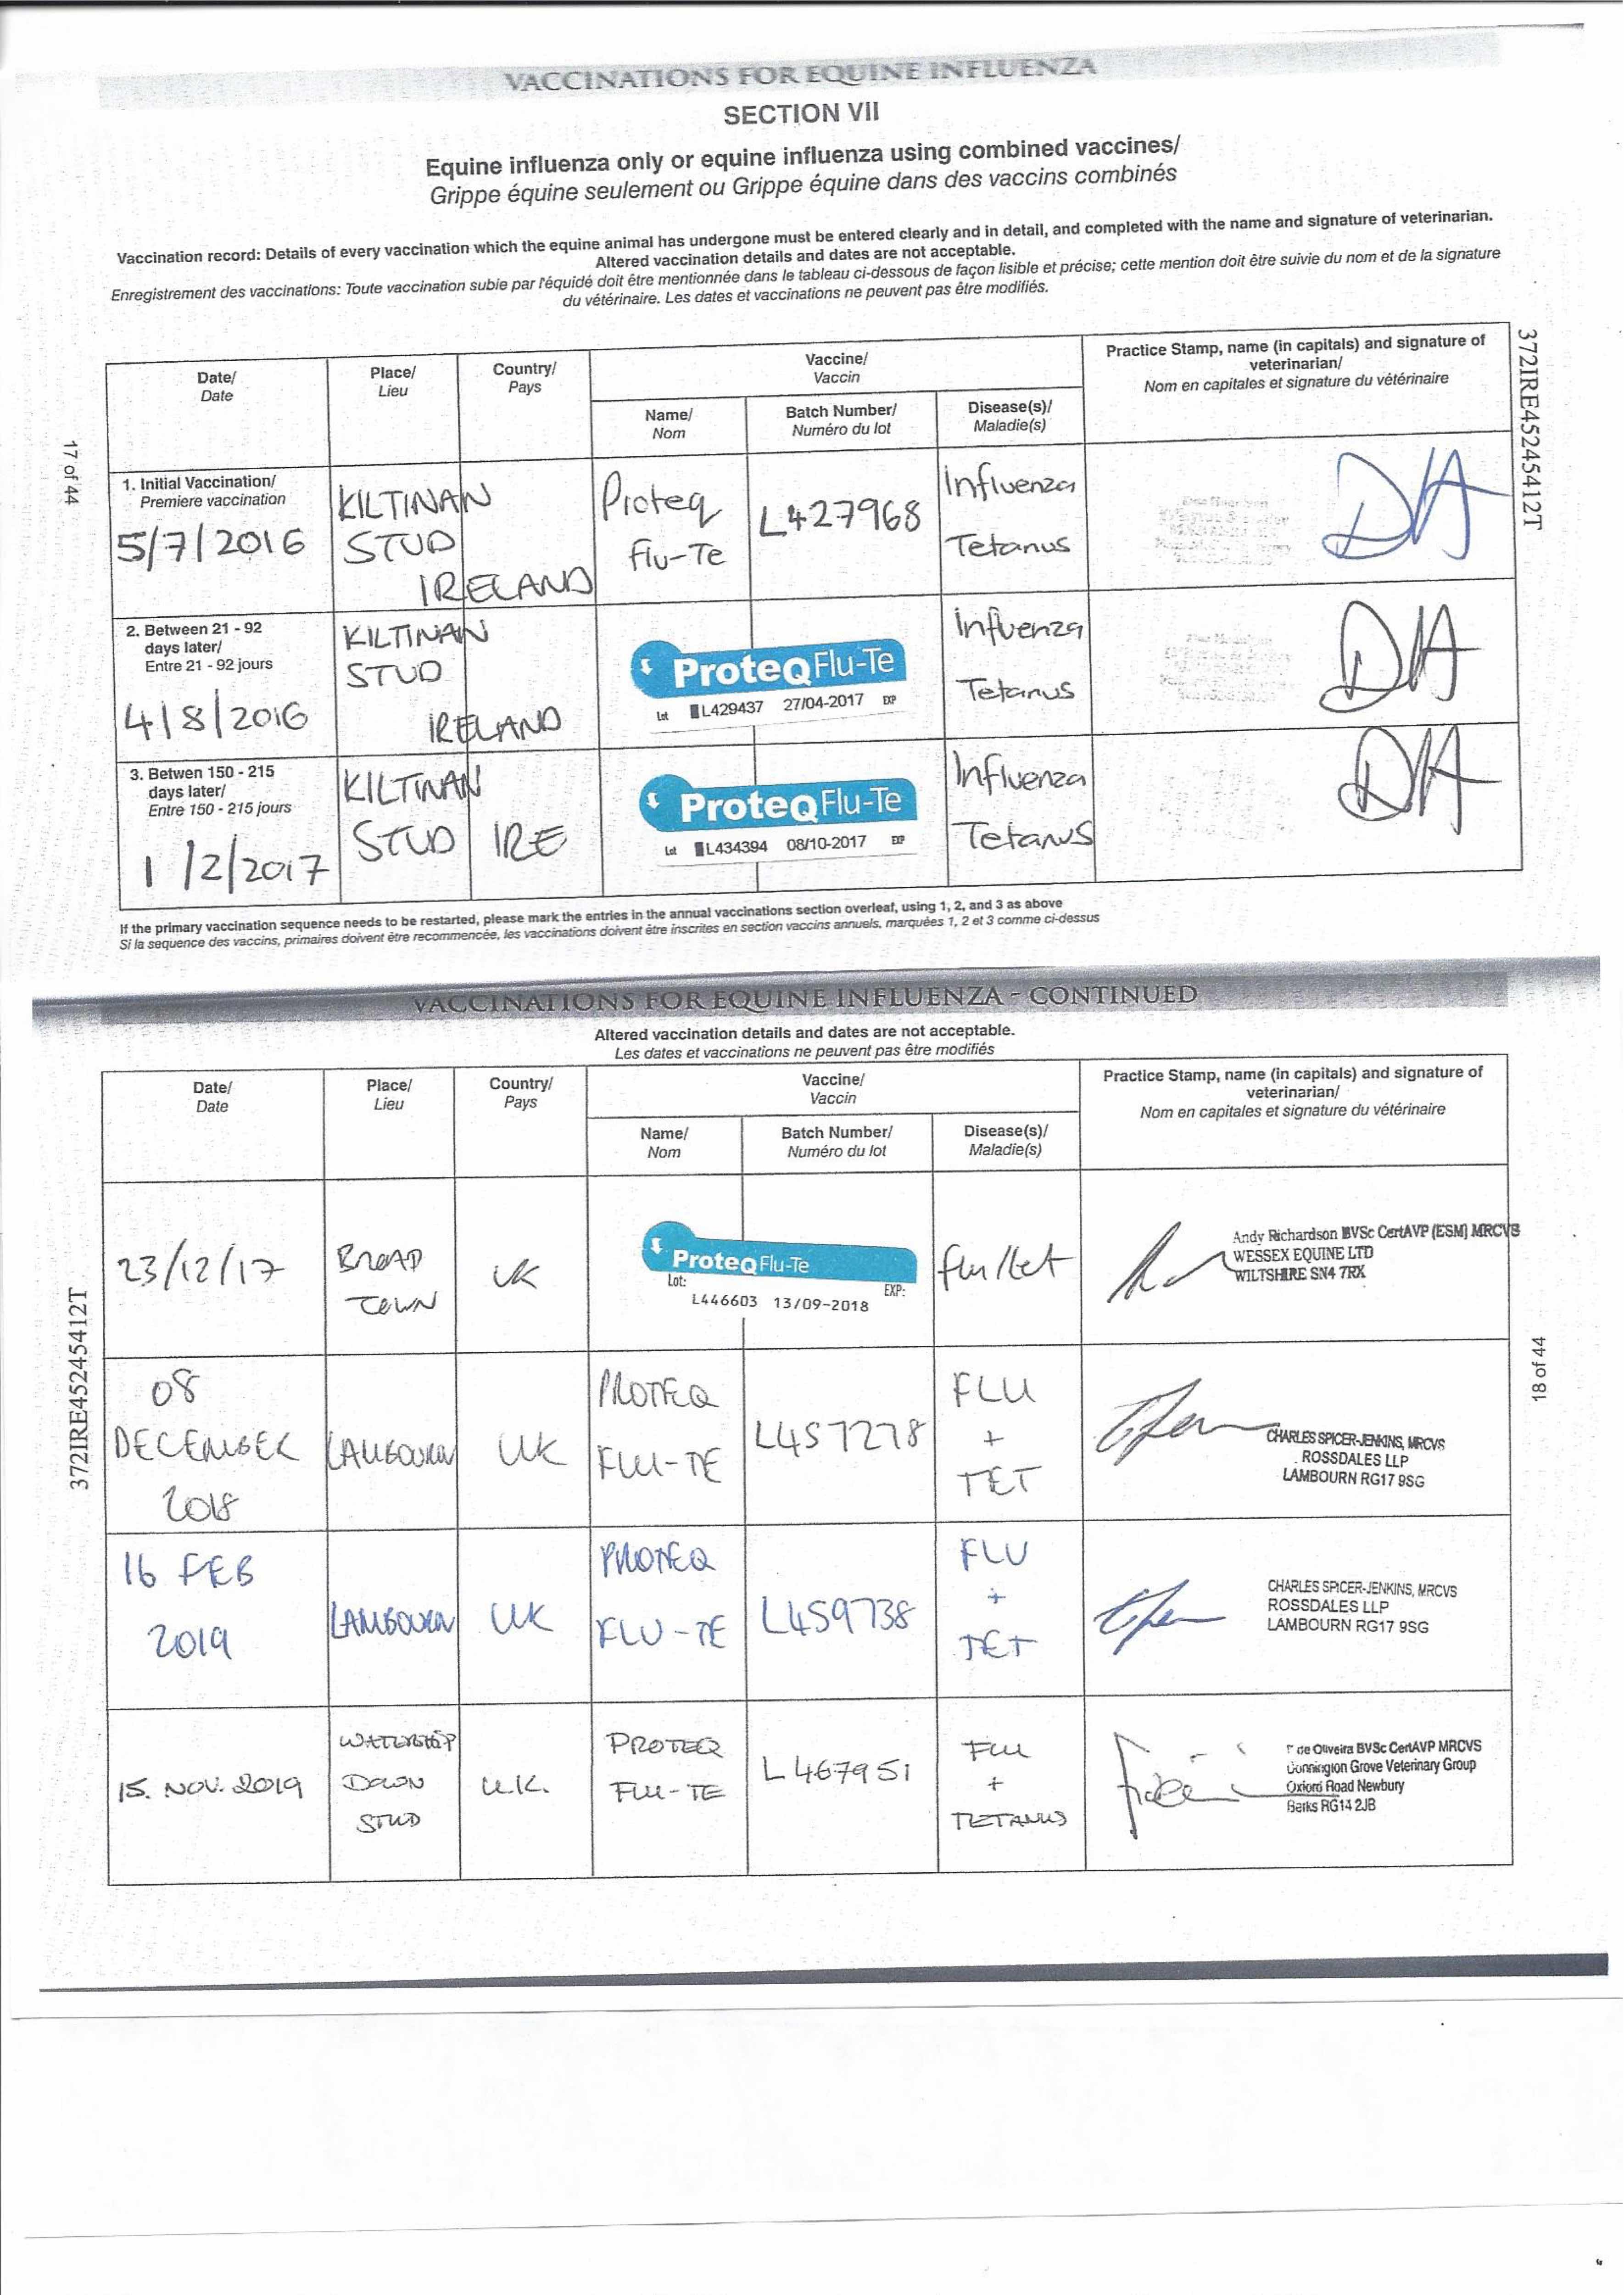 VACCINATIONS FOR EQUINE INFLUENZA
SECTION VII
Equine influenza only or equine influenza using combined vaccines/
Grippe équine seulement ou Grippe équine dans des vaccins combinés
Vaccination record: Details of every vaccination which the equine animal has undergone must be entered clearly and in detail, and completed with the name and signature of veterinarian.
Altered vaccination details and dates are not acceptable.
Enregistrement des vaccinations: Toute vaccination subie par l'équidé doit être mentionnée dans le tableau ci-dessous de façon lisible et précise; cette mention doit être suivie du nom et de la signature
du vétérinaire. Les dates et vaccinations ne peuvent pas être modifiés.
17 of 44
372IRE45245412T
Date/
Date
Place/
Lieu
Country/
Pays
Vaccine/
Vaccin
Name/
Nom
Batch Number/
Numéro du lot
Disease(s)/
Maladie(s)
Practice Stamp, name (in capitals) and signature of
veterinarian/
Nom en capitales et signature du vétérinaire
1. Initial Vaccination/
Premiere vaccination
5/7/2016
KILTINAN
STUD
IRELAND
Proteq
Flu-Te
L427968
Influenza
Tetanus
DA
2. Between 21 - 92
days later/
Entre 21 - 92 jours
4/8/2016
KILTINAN
STUD
IRELAND
ProteqFlu-Te
Lot L429437 27/04-2017 EXP
Influenza
Tetanus
DA
3. Betwen 150 - 215
days later/
Entre 150 - 215 jours
1/2/2017
KILTINAN
STUD IRE
ProteqFlu-Te
Lot L434394 08/10-2017 EXP
Influenza
Tetanus
DA
If the primary vaccination sequence needs to be restarted, please mark the entries in the annual vaccinations section overleaf, using 1, 2, and 3 as above
Si la sequence des vaccins, primaires doivent être recommencée, les vaccinations doivent être inscrites en section vaccins annuels, marquées 1, 2 et 3 comme ci-dessus
VACCINATIONS FOR EQUINE INFLUENZA - CONTINUED
Altered vaccination details and dates are not acceptable.
Les dates et vaccinations ne peuvent pas être modifiés
372IRE45245412T
18 of 44
Date/
Date
Place/
Lieu
Country/
Pays
Vaccine/
Vaccin
Name/
Nom
Batch Number/
Numéro du lot
Disease(s)/
Maladie(s)
Practice Stamp, name (in capitals) and signature of
veterinarian/
Nom en capitales et signature du vétérinaire
23/12/17
BROAD
TOWN
UK
ProteqFlu-Te
Lot: EXP:
L446603 13/09-2018
flu/tet
Andy Richardson BVSc CertAVP (ESM) MRCVS
WESSEX EQUINE LTD
WILTSHIRE SN4 7RX
08
DECEMBER
2018
LAMBOURN
UK
PROTEQ
FLU-TE
L457278
FLU
+
TET
CHARLES SPICER-JENKINS, MRCVS
ROSSDALES LLP
LAMBOURN RG17 9SG
16 FEB
2019
LAMBOURN
UK
PROTEQ
FLU-TE
L459738
FLU
+
TET
CHARLES SPICER-JENKINS, MRCVS
ROSSDALES LLP
LAMBOURN RG17 9SG
15. NOV. 2019
WATERSHIP
DOWN
STUD
U.K.
PROTEQ
FLU-TE
L467951
FLU
+
TETANUS
de Oliveira BVSc CertAVP MRCVS
Donnington Grove Veterinary Group
Oxford Road Newbury
Berks RG14 2JB